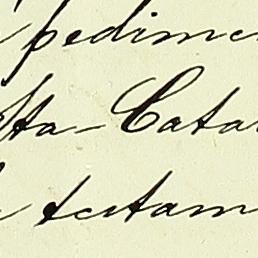 pedime
sta-Cata
testam